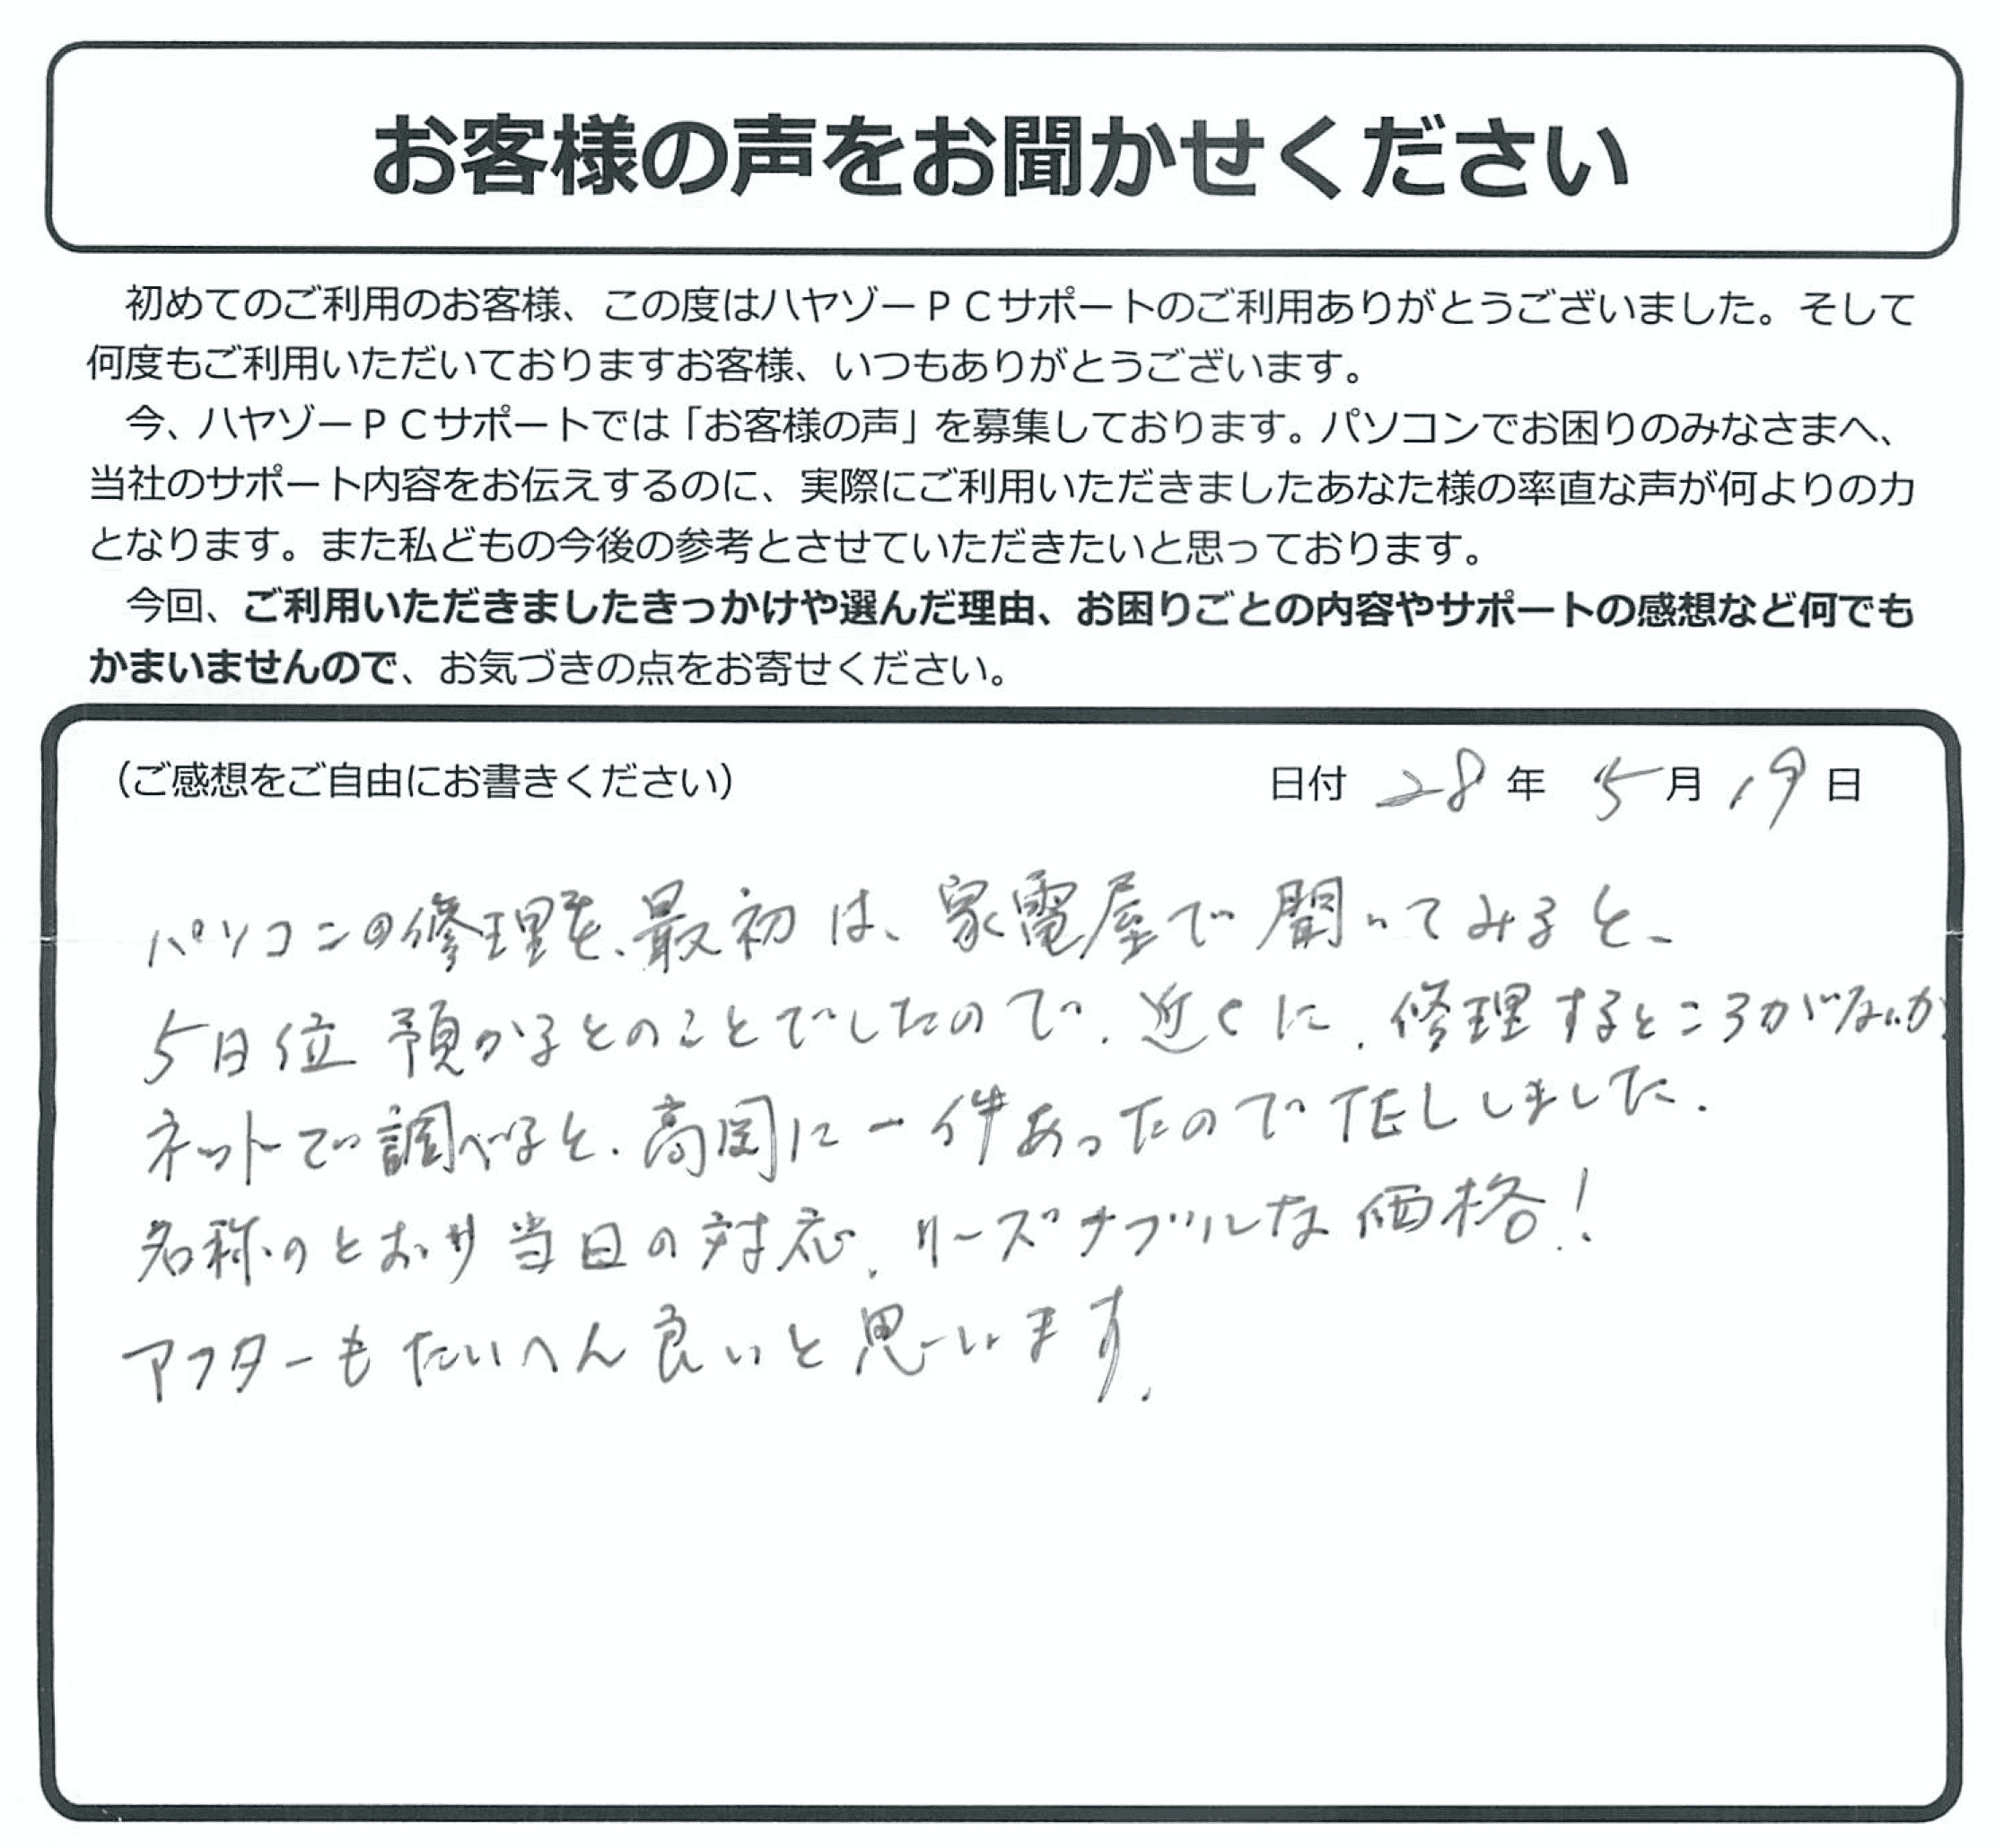 お客様の声をお聞かせください
初めてのご利用のお客様、この度はハヤゾーPCサポートのご利用ありがとうございました。そして
何度もご利用いただいておりますお客様、いつもありがとうございます。
今、ハヤゾーPCサポートでは「お客様の声」を募集しております。パソコンでお困りのみなさまへ、
当社のサポート内容をお伝えするのに、実際にご利用いただきましたあなた様の率直な声が何よりの力
となります。また私どもの今後の参考とさせていただきたいと思っております。
今回、ご利用いただきましたきっかけや選んだ理由、お困りごとの内容やサポートの感想など何でも
かまいませんので、お気づきの点をお寄せください。
（ご感想をご自由にお書きください） 日付 28年 5月 19日
パソコンの修理を、最初は、家電屋で聞いてみると、
5日位 預かるとのことでしたので、近くに、修理するところがないか
ネットで調べると、高岡に一件あったので TELしました。
名称のとおり当日の対応、リーズナブルな価格！
アフターもたいへん良いと思います。